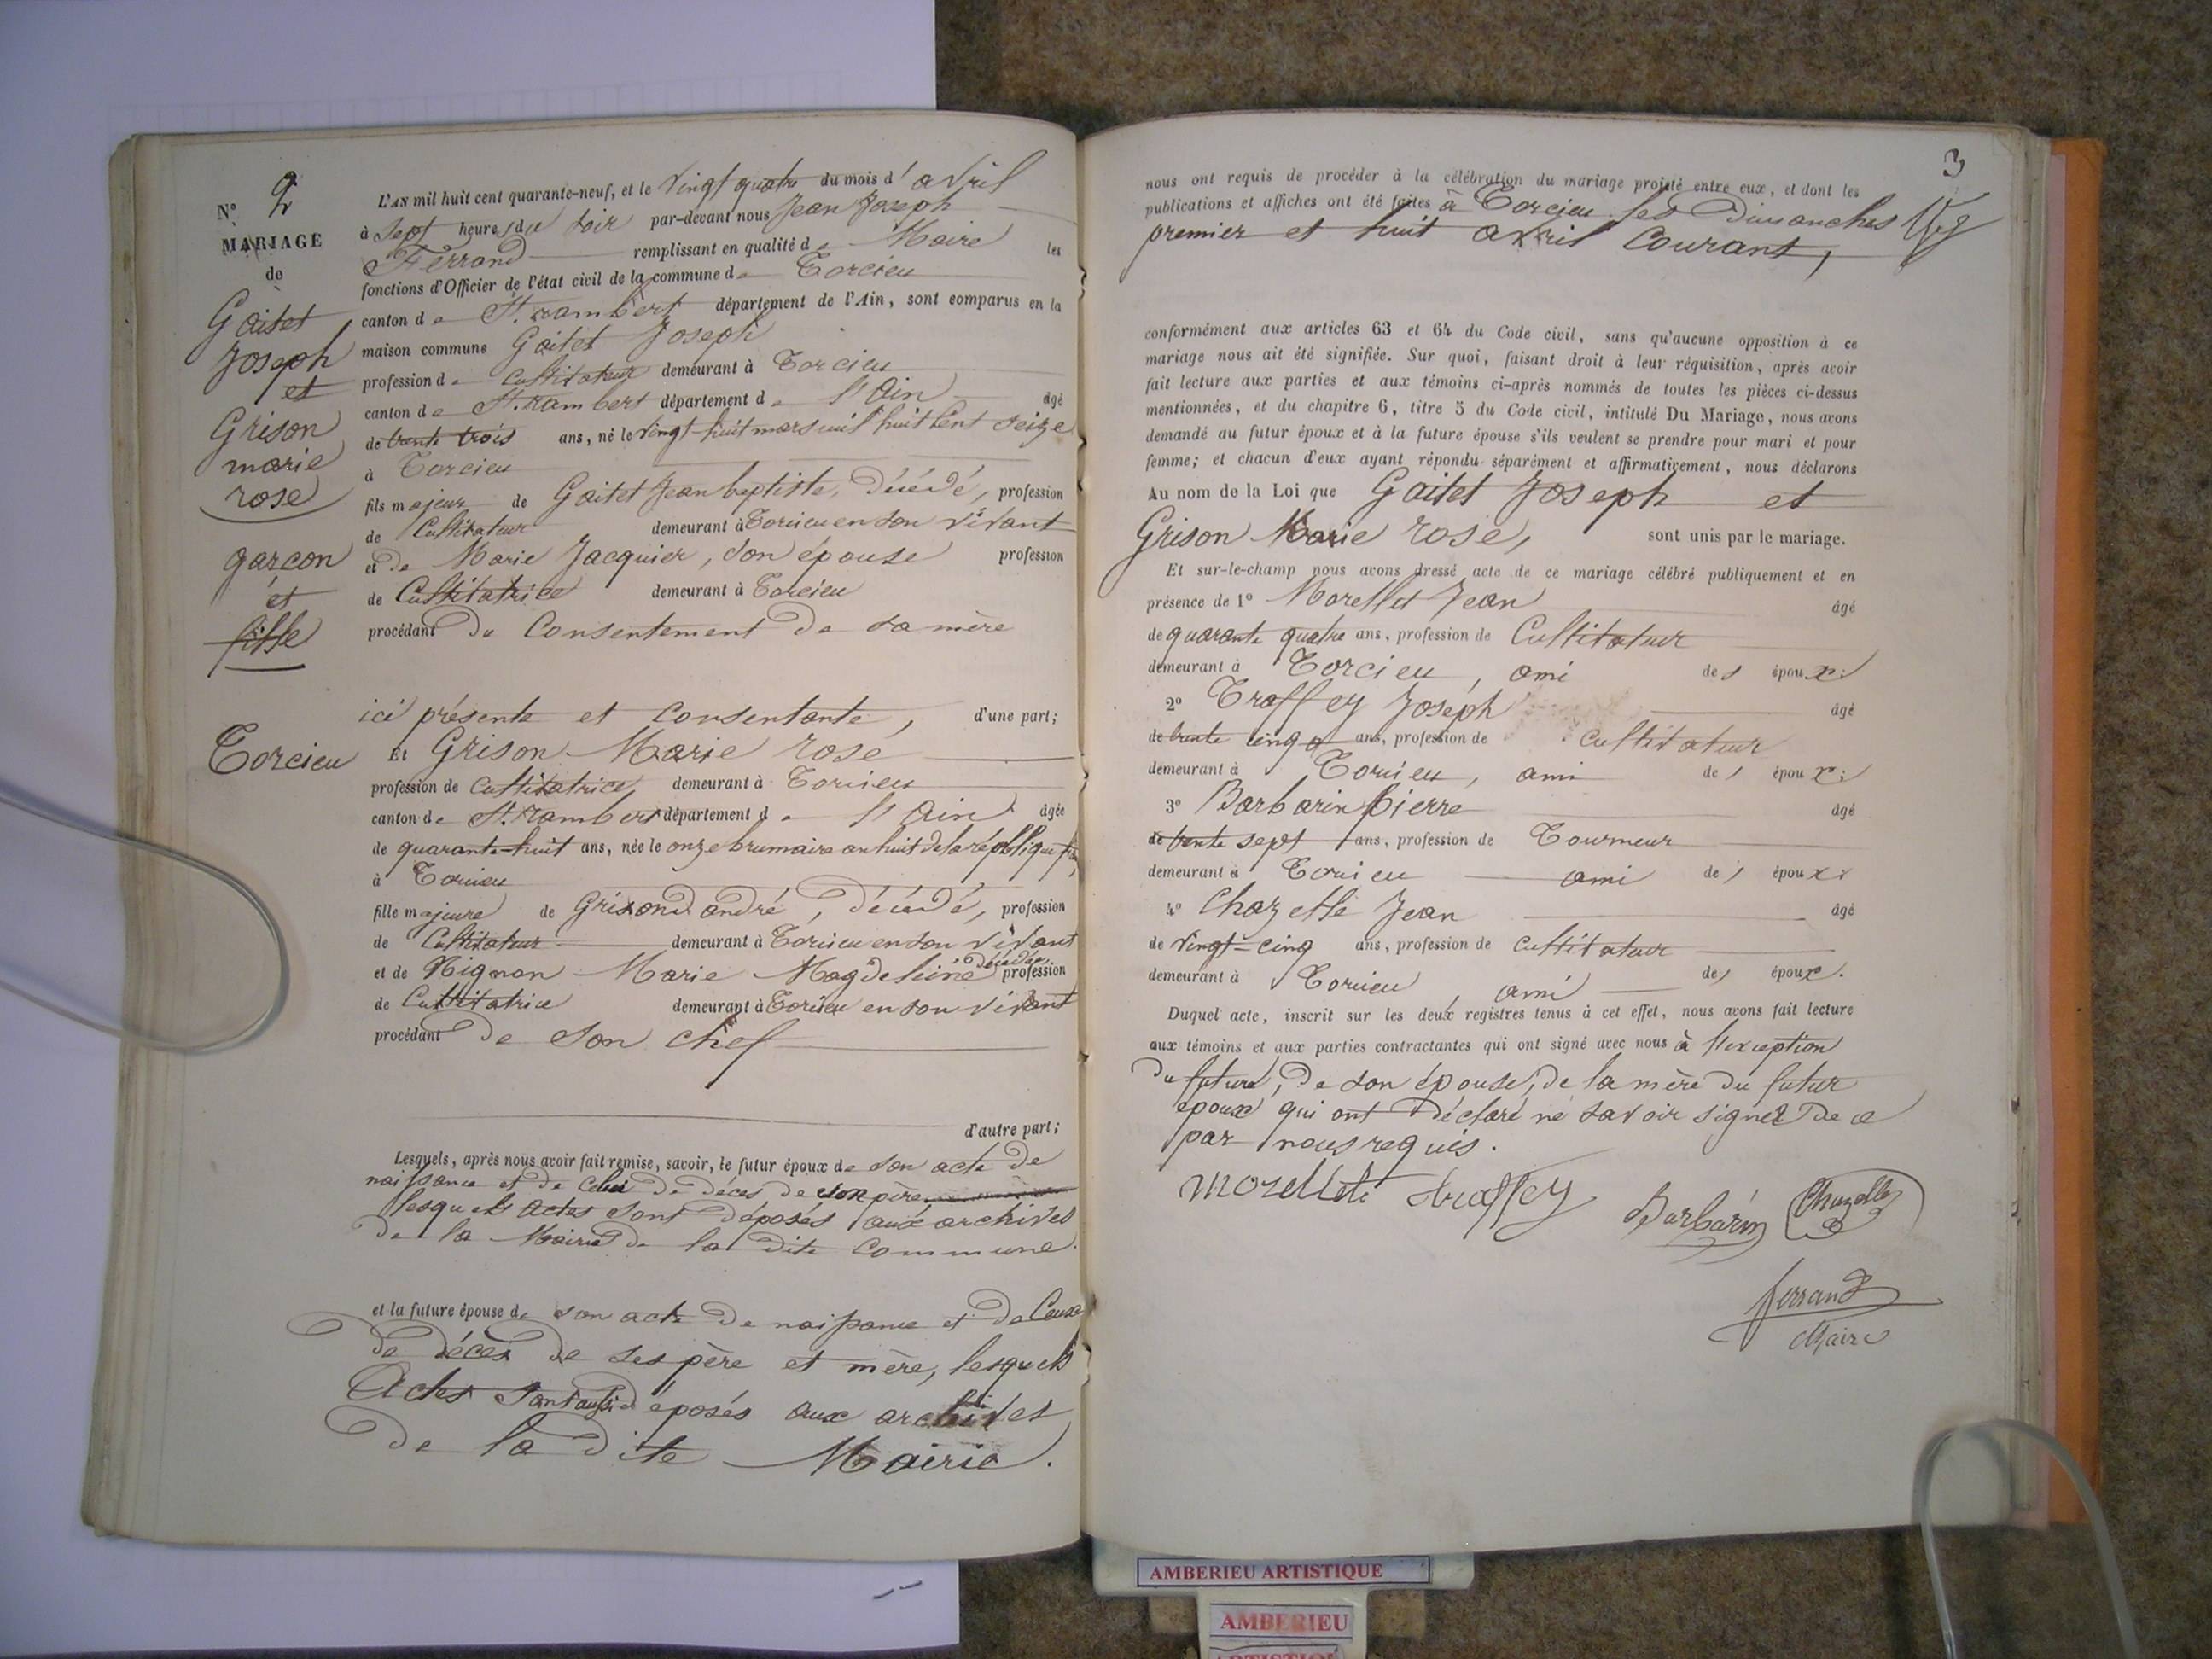 N° 2
MARIAGE
de
Gaitet
Joseph
et
Grison
marie
rose
garçon
et
fille
Torcieu
L'AN mil huit cent quarante-neuf, et le Vingt quatre du mois d'avril
à Sept heures du soir par-devant nous Jean Joseph
Ferrand remplissant en qualité de Maire les
fonctions d'Officier de l'état civil de la commune de Torcieu
canton de St. rambert département de l'Ain, sont comparus en la
maison commune Gaitet Joseph
profession de Cultivateur demeurant à Torcieu
canton de St. rambert département de l'Ain âgé
de trente trois ans, né le Vingt-huit mars mil huit Cent seize
à Torcieu
fils majeur de Gaitet Jean baptiste, Décédé, profession
de Cultivateur demeurant à Torcieu en son vivant
et de Marie Jacquier, son épouse profession
de Cultivatrice demeurant à Torcieu
procédant du Consentement de sa mère
ici présente et Consentante, d'une part;
Et Grison Marie rose
profession de Cultivatrice demeurant à Torcieu
canton de St. rambert département de l'Ain âgée
de quarante-huit ans, née le onze brumaire an huit de la république
à Torcieu
fille majeure de Grison andré, Décédé, profession
de Cultivateur demeurant à Torcieu en son vivant
et de Mignon Marie Magdeleine décédée profession
de Cultivatrice demeurant à Torcieu en son vivant
procédant de son chef
d'autre part;
Lesquels, après nous avoir fait remise, savoir, le futur époux de son acte de
naissance et de Celui de décès de son père
lesquels actes sont déposés aux archives
de la Mairie de la dite Commune.
et la future épouse de son acte de naissance et de Ceux
de décès de ses père et mère, lesquels
Actes sont aussi déposés aux archives
de la dite Mairie.
3
nous ont requis de procéder à la célébration du mariage projeté entre eux, et dont les
publications et affiches ont été faites à Torcieu les Dimanches
premier et huit avril Courant,
conformément aux articles 63 et 64 du Code civil, sans qu'aucune opposition à ce
mariage nous ait été signifiée. Sur quoi, faisant droit à leur réquisition, après avoir
fait lecture aux parties et aux témoins ci-après nommés de toutes les pièces ci-dessus
mentionnées, et du chapitre 6, titre 5 du Code civil, intitulé Du Mariage, nous avons
demandé au futur époux et à la future épouse s'ils veulent se prendre pour mari et pour
femme; et chacun d'eux ayant répondu séparément et affirmativement, nous déclarons
Au nom de la Loi que Gaitet Joseph et
Grison Marie rose, sont unis par le mariage.
Et sur-le-champ nous avons dressé acte de ce mariage célébré publiquement et en
présence de 1° Morellet Jean âgé
de quarante quatre ans, profession de Cultivateur
demeurant à Torcieu, ami des époux;
2° Traffey Joseph âgé
de trente cinq ans, profession de Cultivateur
demeurant à Torcieu, ami des époux;
3° Barbarin Pierre âgé
de trente sept ans, profession de Tourneur
demeurant à Torcieu ami des époux;
4° Chazelle Jean âgé
de Vingt-cinq ans, profession de Cultivateur
demeurant à Torcieu, ami des époux.
Duquel acte, inscrit sur les deux registres tenus à cet effet, nous avons fait lecture
aux témoins et aux parties contractantes qui ont signé avec nous à l'exception
du futur, de son épouse, de la mère du futur
époux qui ont déclaré ne savoir signer de ce
par nous requis.
Morellet traffey Barbarin Chazelle
ferrand
Maire
AMBERIEU ARTISTIQUE
AMBERIEU
ARTISTIQUE